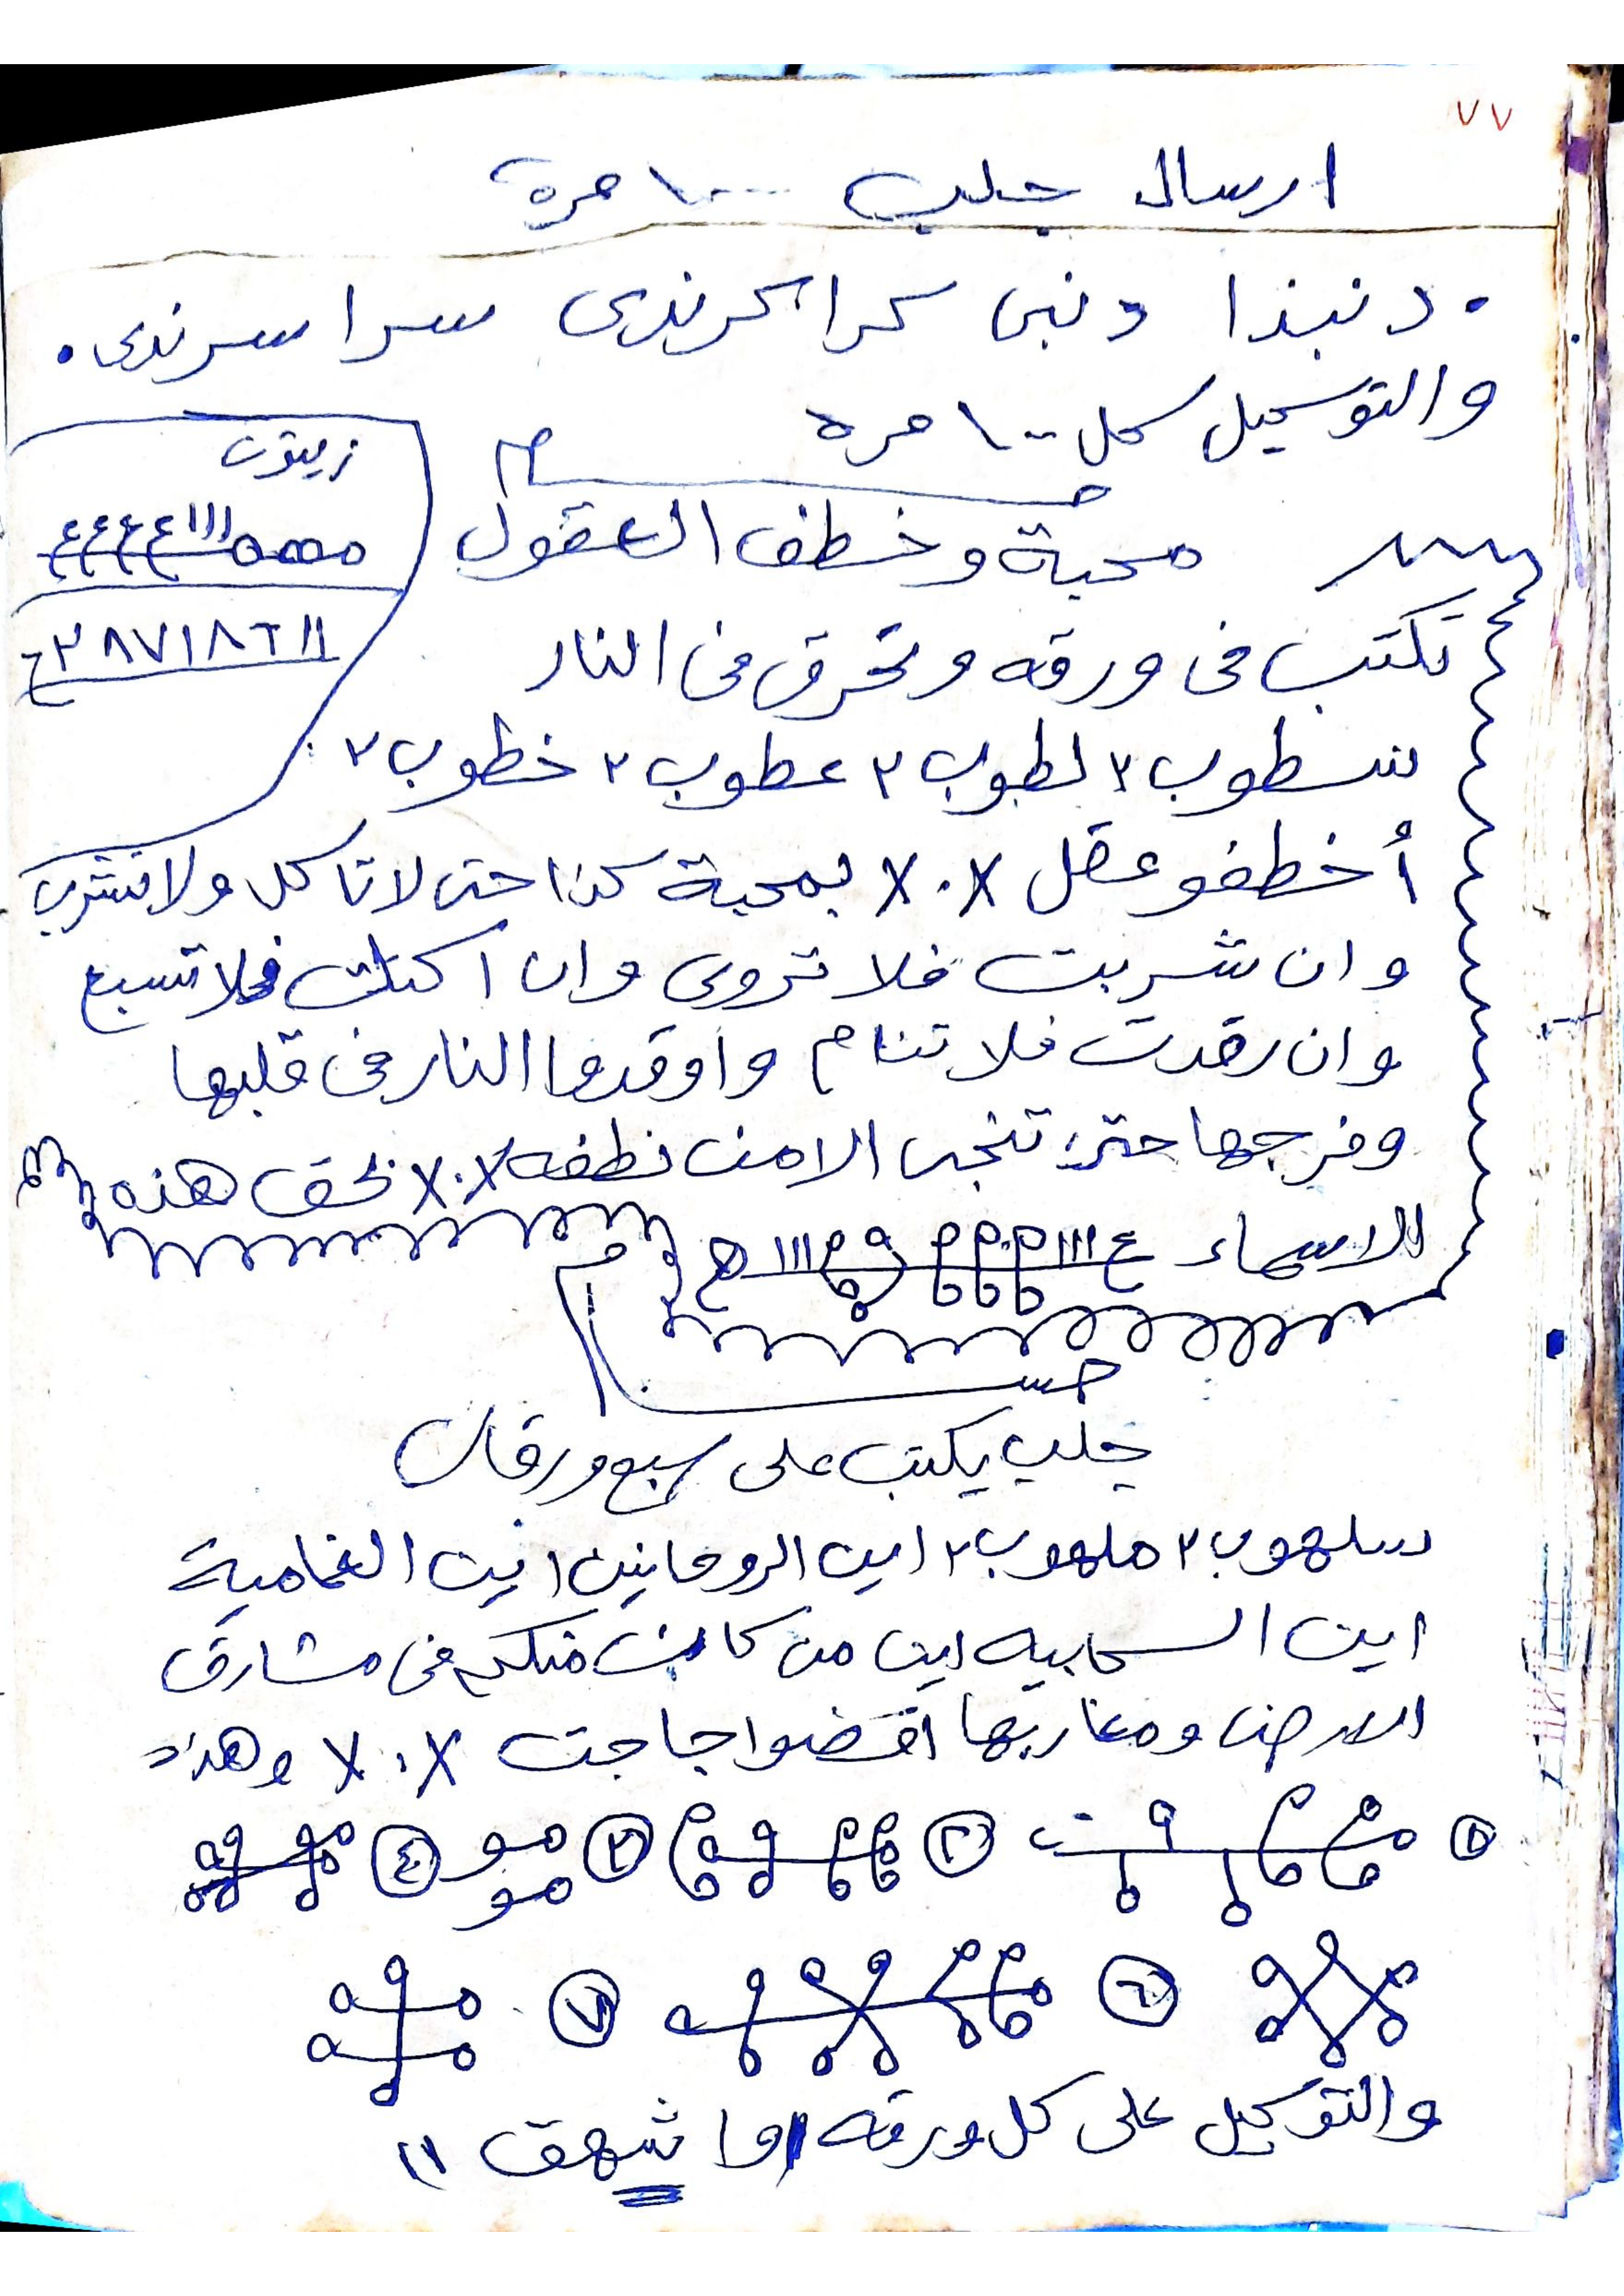 ٧٧
ارسال جلب ١٠٠٠ مرة
٠ دنبذا دنبى كرا كرندى سرا سرندى ٠
والتوكيل كل ١٠٠ مره
زيتون
محبة وخطف العقول
تكتب فى ورقه وتحرق فى النار
٣ لطوب ٣ عطوب ٣ خطوب ٣
أخطفو عقل X.X بمحبة كذا حتى لا تاكل ولا تشرب
وان شربت فلا تروى وان اكلت فلا تشبع
وان رقدت فلا تنام واوقدوا النار فى قلبها
وفرجها حتى الا من نطفه X.X بحق هذه
الاسماء
جلب يكتب على سبع ورقات
سلهوب ٢ ملهوب ٢ اين الروحانين اين الغمامية
اين السحابيه اين من كان منكم فى مشارق
الارض ومغاربها اقضوا حاجت X.X وهذا
٢ ٣ ٤
٦ ٧
والتوكيل على كل ورقه شهق ١١